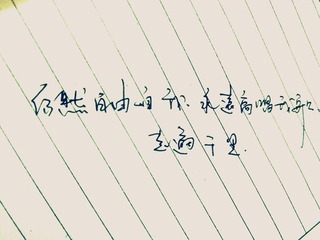 仍然自由自我 永远高唱我歌
走遍千里